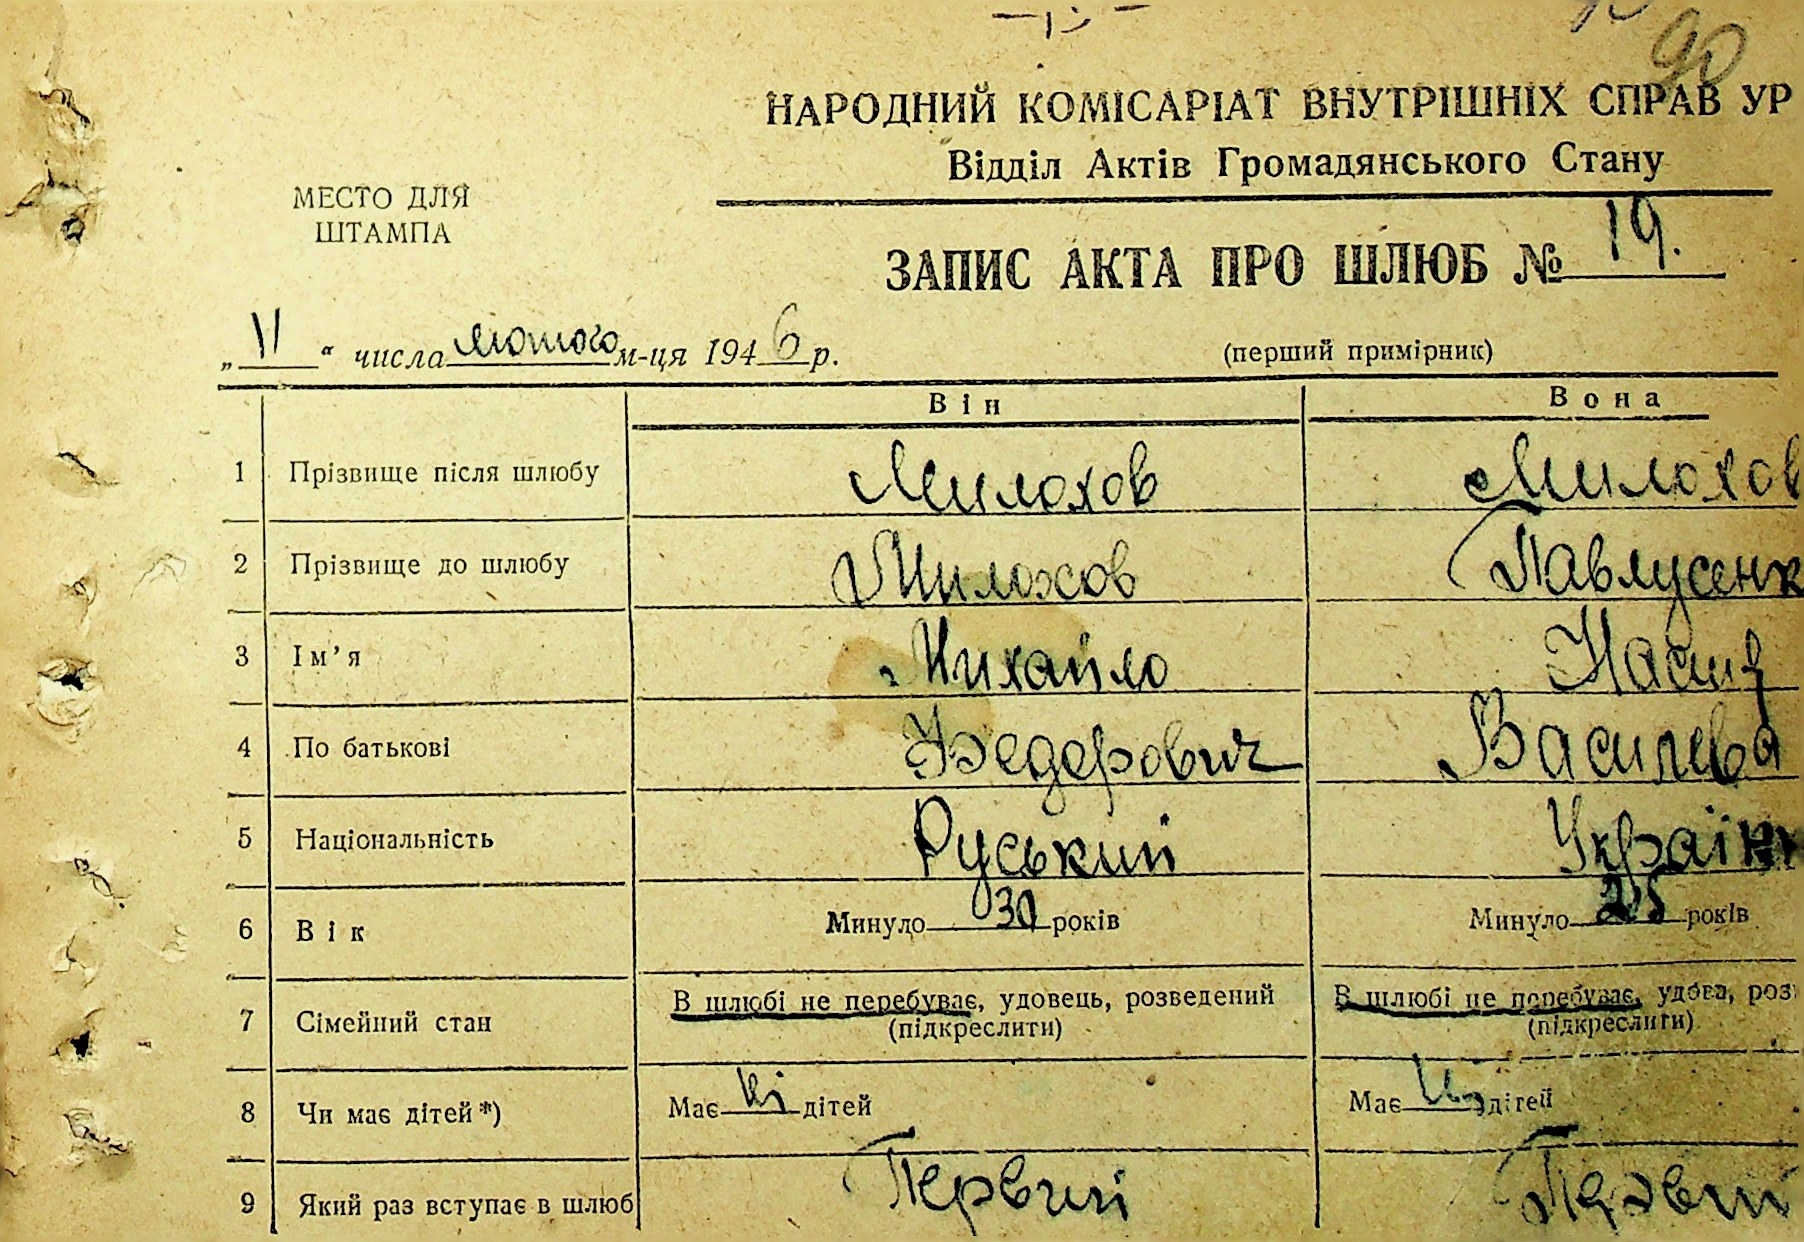 90
НАРОДНИЙ КОМІСАРІАТ ВНУТРІШНІХ СПРАВ УР
Відділ Актів Громадянського Стану
МЕСТО ДЛЯ
ШТАМПА
ЗАПИС АКТА ПРО ШЛЮБ № 19.
„ 11 “ числа лютого м-ця 1946 р.
(перший примірник)
Він Вона
1 Прізвище після шлюбу Милохов Милохов
2 Прізвище до шлюбу Милохов Павлусенк
3 Ім’я Михайло
4 По батькові Федерович Василева
5 Національність Руський Україн
6 Вік Минуло 30 років Минуло 25 років
7 Сімейний стан В шлюбі не перебуває, удовець, розведений В шлюбі не перебуває, удова, роз
(підкреслити) (підкреслити)
8 Чи має дітей*) Має ні дітей Має ні дітей
9 Який раз вступає в шлюб Первий Первий